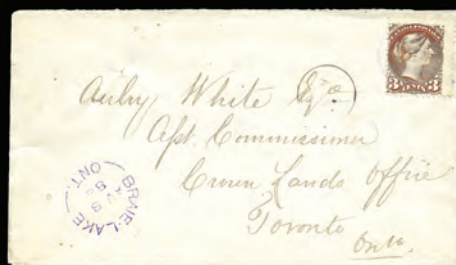 3 CENTS 3
White Esqre
Asst. Commissioner
Crown Lands Office
Toronto
Onto.
BRAIE-LAKE
ONT.